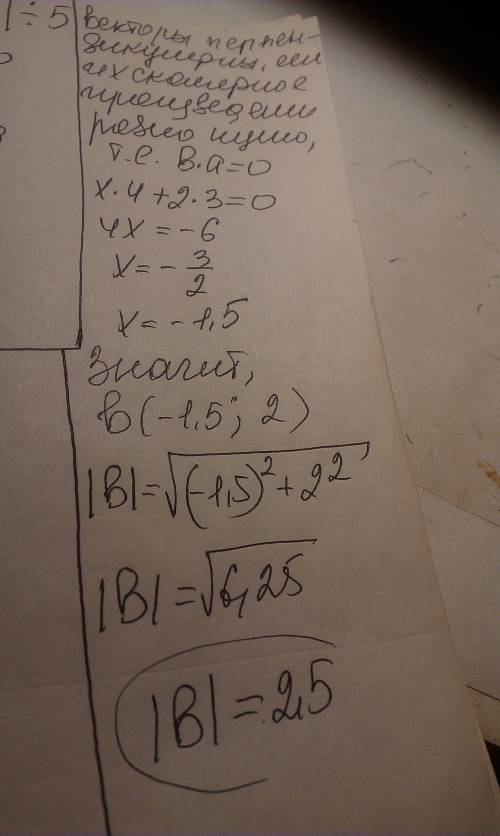 1 ÷ 5
Векторы перпен-
дикулярны, если
их скалярное
произведение
равно нулю,
т.е. в·а=0
х·4+2·3=0
4х=-6
х=-3/2
х=-1,5
Значит,
в(-1,5; 2)
|В|=√(-1,5)²+2²
|В|=√6,25
|В|=2,5